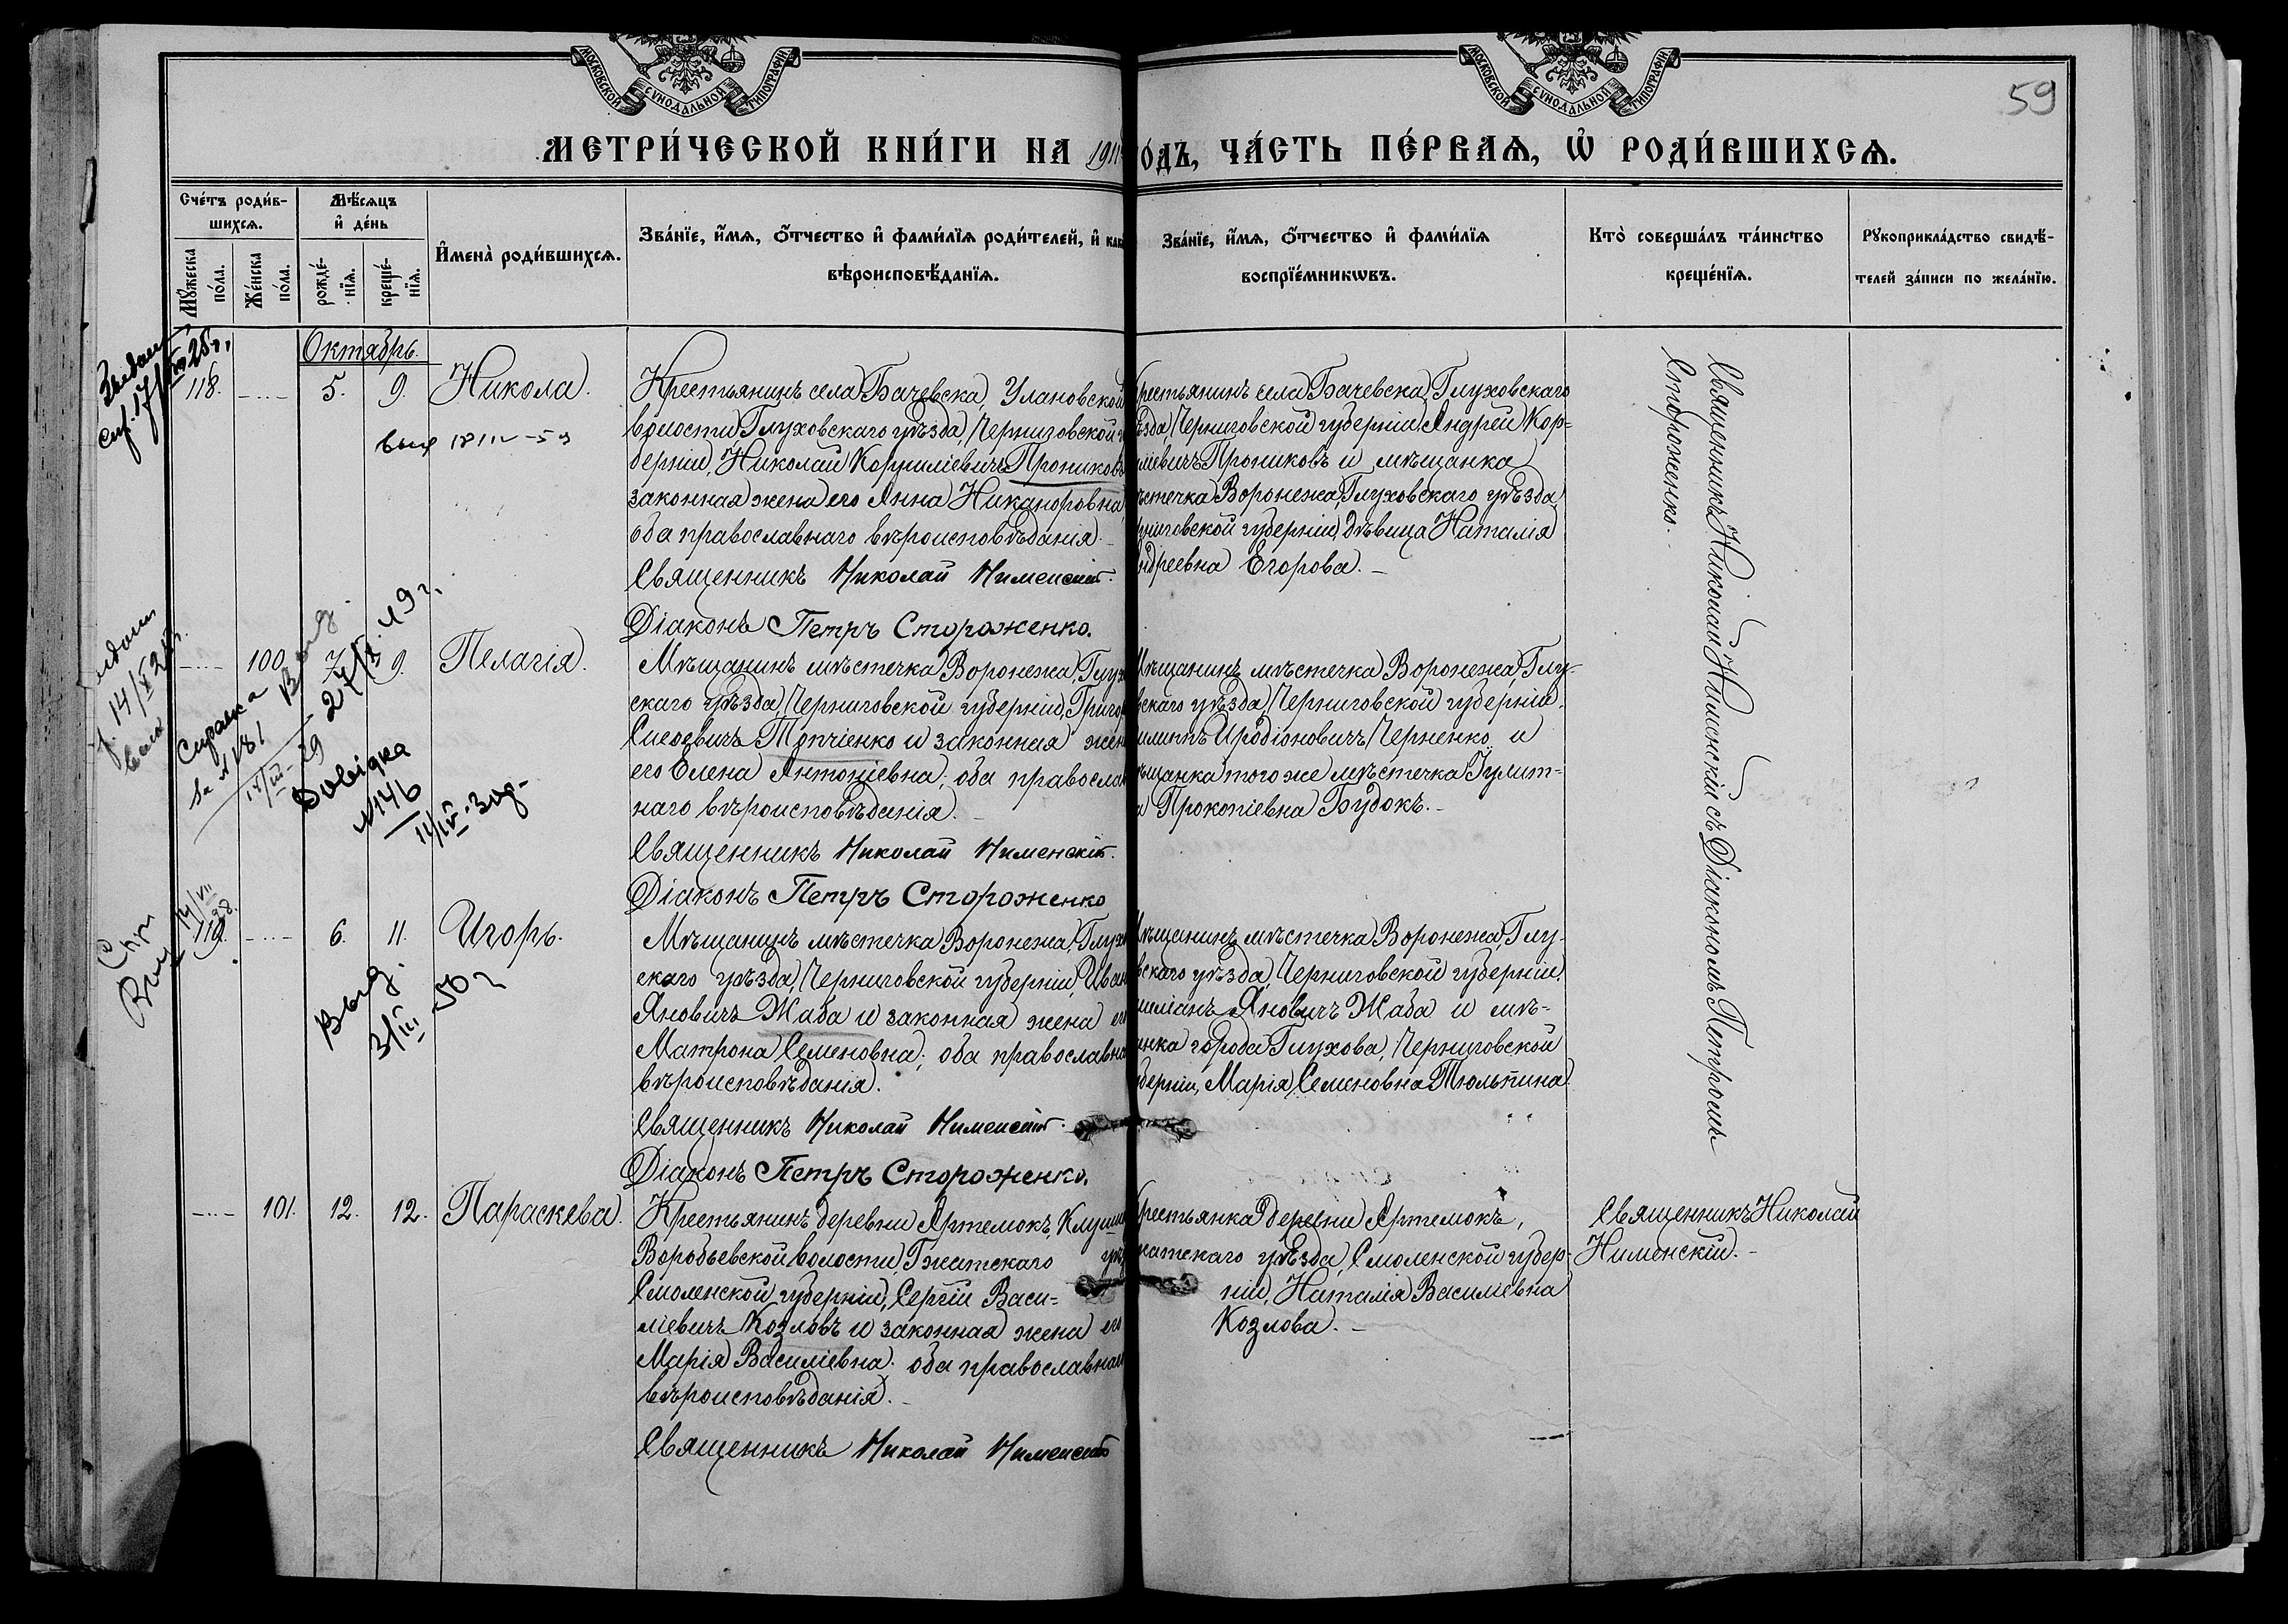 МОСКОВСКОЙ СѴНОДАЛЬНОЙ ТИПОГРАФІИ
МОСКОВСКОЙ СѴНОДАЛЬНОЙ ТИПОГРАФІИ
59
МЕТРИ́ЧЕСКОЙ КНИ́ГИ НА 191
ОДЪ, ЧА́СТЬ ПЕ́РВАѦ, Ѡ҆ РОДИ́ВШИХСѦ.
Сче́тъ роди́в-
шихсѧ.
Мꙋ́жеска по́ла.
Же́нска по́ла.
Мѣ́сѧцъ
и҆ де́нь
рожде́-
нїѧ.
креще́-
нїѧ.
И҆мена̀ роди́вшихсѧ.
Зва́нїе, и҆́мѧ, ѻ҆́тчество и҆ фами́лїѧ роди́телей, и҆ как
вѣроисповѣ́данїѧ.
Зва́нїе, и҆́мѧ, ѻ҆́тчество и҆ фами́лїѧ
воспрїе́мникѡвъ.
Кто̀ соверша́лъ та́инство
креще́нїѧ.
Рꙋкоприкла́дство свидѣ́-
телей за́писи по жела́нїю.
Октябрь.
118. 5. 9. Никола.
Крестьянинъ села Бачевска, Улановской
волости Глуховскаго уѣзда, Черниговской г
берніи, Николай Корниліевичъ Прониковъ
законная жена его Анна Никаноровна
оба православнаго вѣроисповѣданія.
Священникъ Николай Нименскій.
Діаконъ Петръ Стороженко.
рестьянинъ села Бачевска, Глуховскаго
ѣзда, Черниговской губерніи, Андрей Кор-
иліевичъ Прониковъ и мѣщанка
ѣстечка Воронежа, Глуховскаго уѣзда,
рниговской губерніи, дѣвица Наталія
ндреевна Егорова.
Священникъ Николай Нименскій съ Діакономъ Петромъ
Стороженко.
17/ 28 г.
выд 18 IV-59
100. 7. 9. Пелагія.
Мѣщанинъ мѣстечка Воронежа, Глух
скаго уѣзда, Черниговской губерніи, Григор
Сисоевичъ Топчіенко и законная жен
его Елена Антоніевна; оба православ
наго вѣроисповѣданія.
Священникъ Николай Нименскій.
Діаконъ Петръ Стороженко
Мѣщанинъ мѣстечка Воронежа, Глу-
вскаго уѣзда, Черниговской губерніи,
илиппъ Иродіоновичъ Черненко и
ѣщанка того же мѣстечка Гулит-
а Прокопіевна Будокъ.
14/X 2
Справка
за № 181
14/III-29
Выд.
27/X.49 г.
Довідка
№146
11/IV.30 р.
119. 6. 11. Игорь.
Мѣщанинъ мѣстечка Воронежа, Глух
скаго уѣзда, Черниговской губерніи, Иван
Яновичъ Жаба и законная жена ег
Матрона Семеновна; оба православна
вѣроисповѣданія.
Священникъ Николай Нименскій.
Діаконъ Петръ Стороженко.
ѣщанинъ мѣстечка Воронежа, Глу-
вскаго уѣзда, Черниговской губерніи,
иліанъ Яновичъ Жаба и мѣ-
анка города Глухова, Черниговской
уберніи, Марія Семеновна Тюльпина.
14/VII
28.
Выд.
31/III-50 г
101. 12. 12. Параскева.
Крестьянинъ деревни Артемокъ, Клуши
Воробьевской волости, Гжатскаго уѣз
Смоленской губерніи, Сергій Васи-
ліевичъ Козловъ и законная жена его
Марія Василіевна; оба православнаг
вѣроисповѣданія.
Священникъ Николай Нименскій
рестьянка деревни Артемокъ,
жатскаго уѣзда, Смоленской губер-
ніи, Наталія Василіевна
Козлова.
Священникъ Николай
Нименскій.